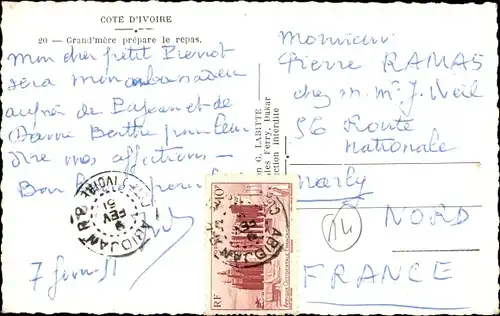 COTE D'IVOIRE
20 — Grand'mère prépare le repas.
mon cher petit Pierrot
sera mon ambassadeur
auprès de et de
Berthe pour leur
dire mes affections —
Bon
7 51
G. LABITTE
Ferry, Dakar
Interdite
ABIDJAN R.P.
COTE D'IVOIRE
9
FEV
51
RF
ABIDJAN R.P.
Monsieur
Pierre RAMAS
chez m. mr J. Weil
56 Route
Nationale
Marly
NORD
14
FRANCE